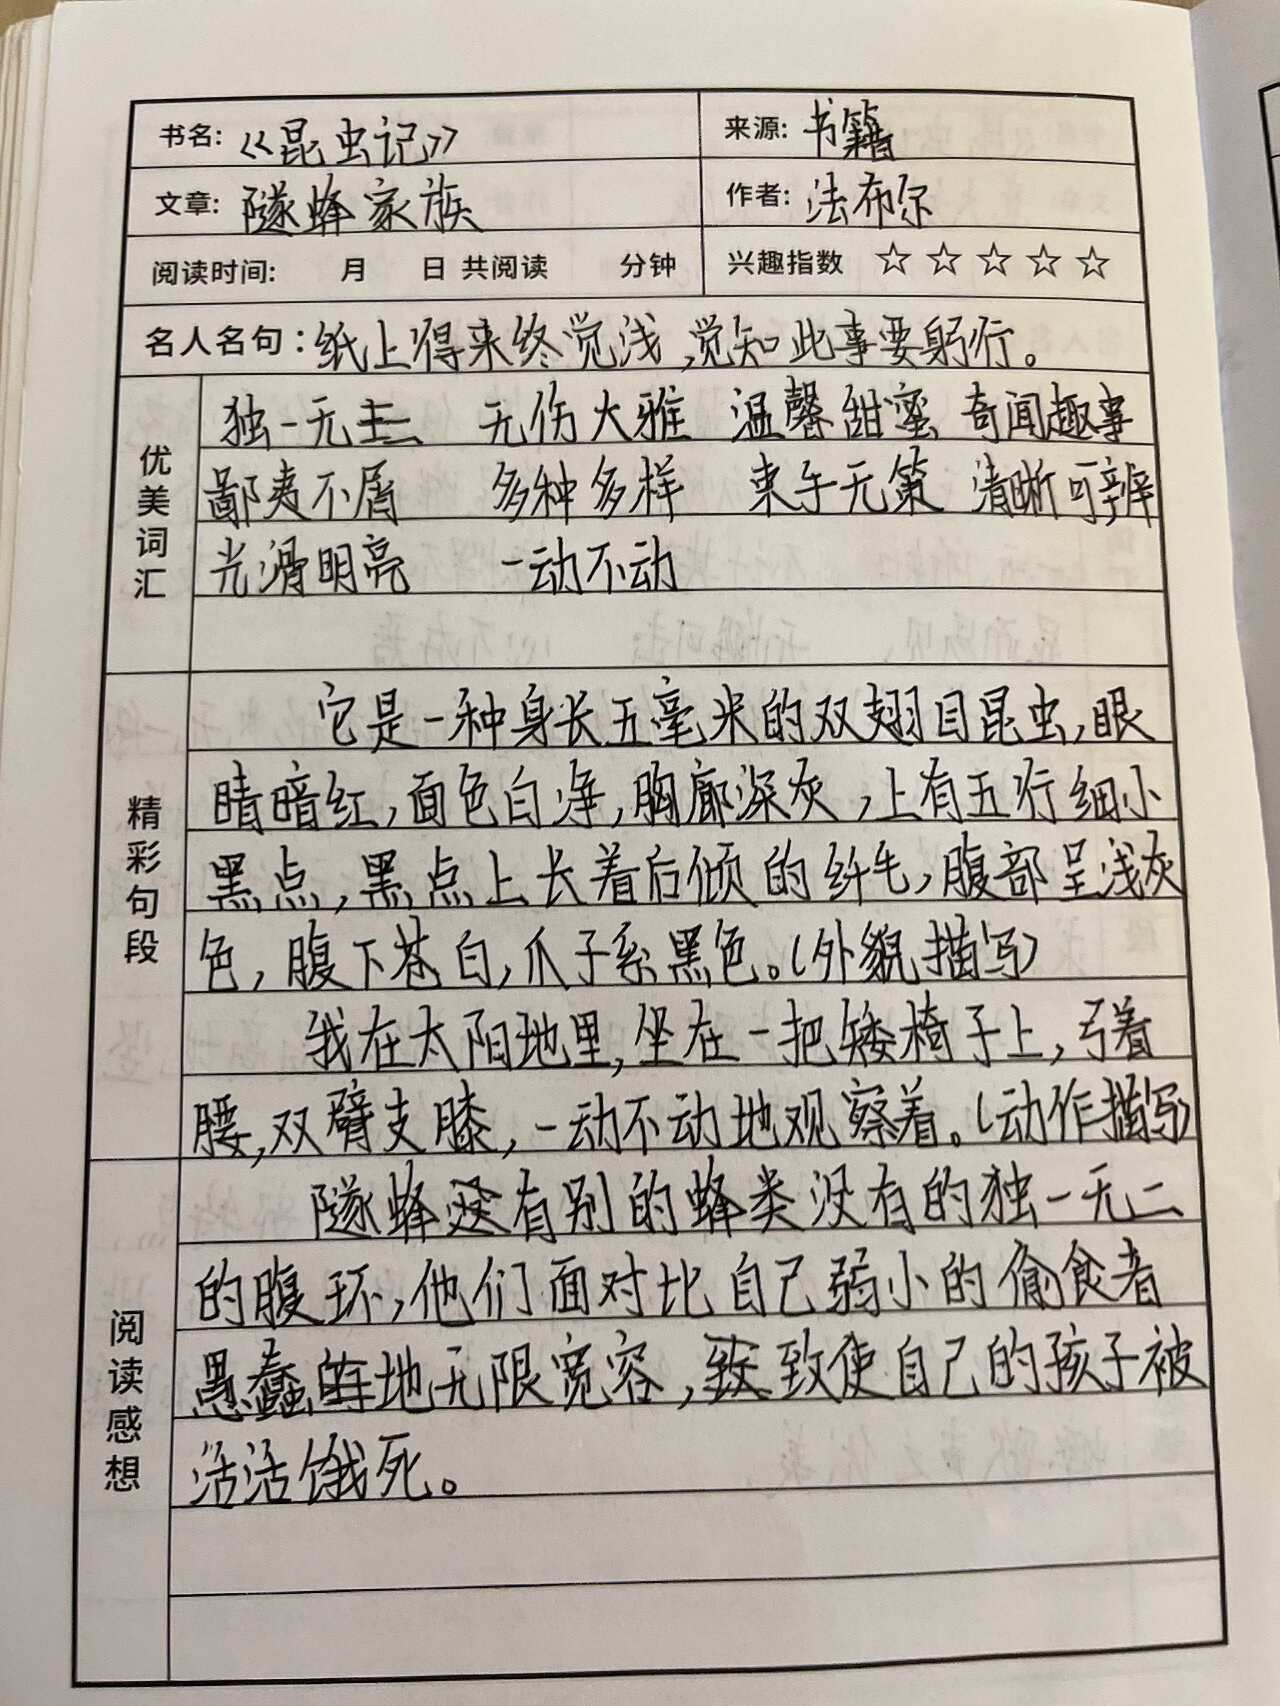 书名:《昆虫记》 来源:书籍
文章:隧蜂家族 作者:法布尔
阅读时间: 月 日 共阅读 分钟 兴趣指数 ☆☆☆☆☆
名人名句:纸上得来终觉浅,觉知此事要躬行。
优美词汇
独一无二 无伤大雅 温馨甜蜜 奇闻趣事
鄙夷不屑 多种多样 束手无策 清晰可辨
光滑明亮 一动不动
精彩句段
它是一种身长五毫米的双翅目昆虫,眼
睛暗红,面色白净,胸廓深灰,上有五行细小
黑点,黑点上长着后倾的纤毛,腹部呈浅灰
色,腹下苍白,爪子系黑色。(外貌描写)
我在太阳地里,坐在一把矮椅子上,弓着
腰,双臂支膝,一动不动地观察着。(动作描写)
阅读感想
隧蜂有别的蜂类没有的独一无二
的腹环,他们面对比自己弱小的偷食者
愚蠢地无限宽容,致使自己的孩子被
活活饿死。